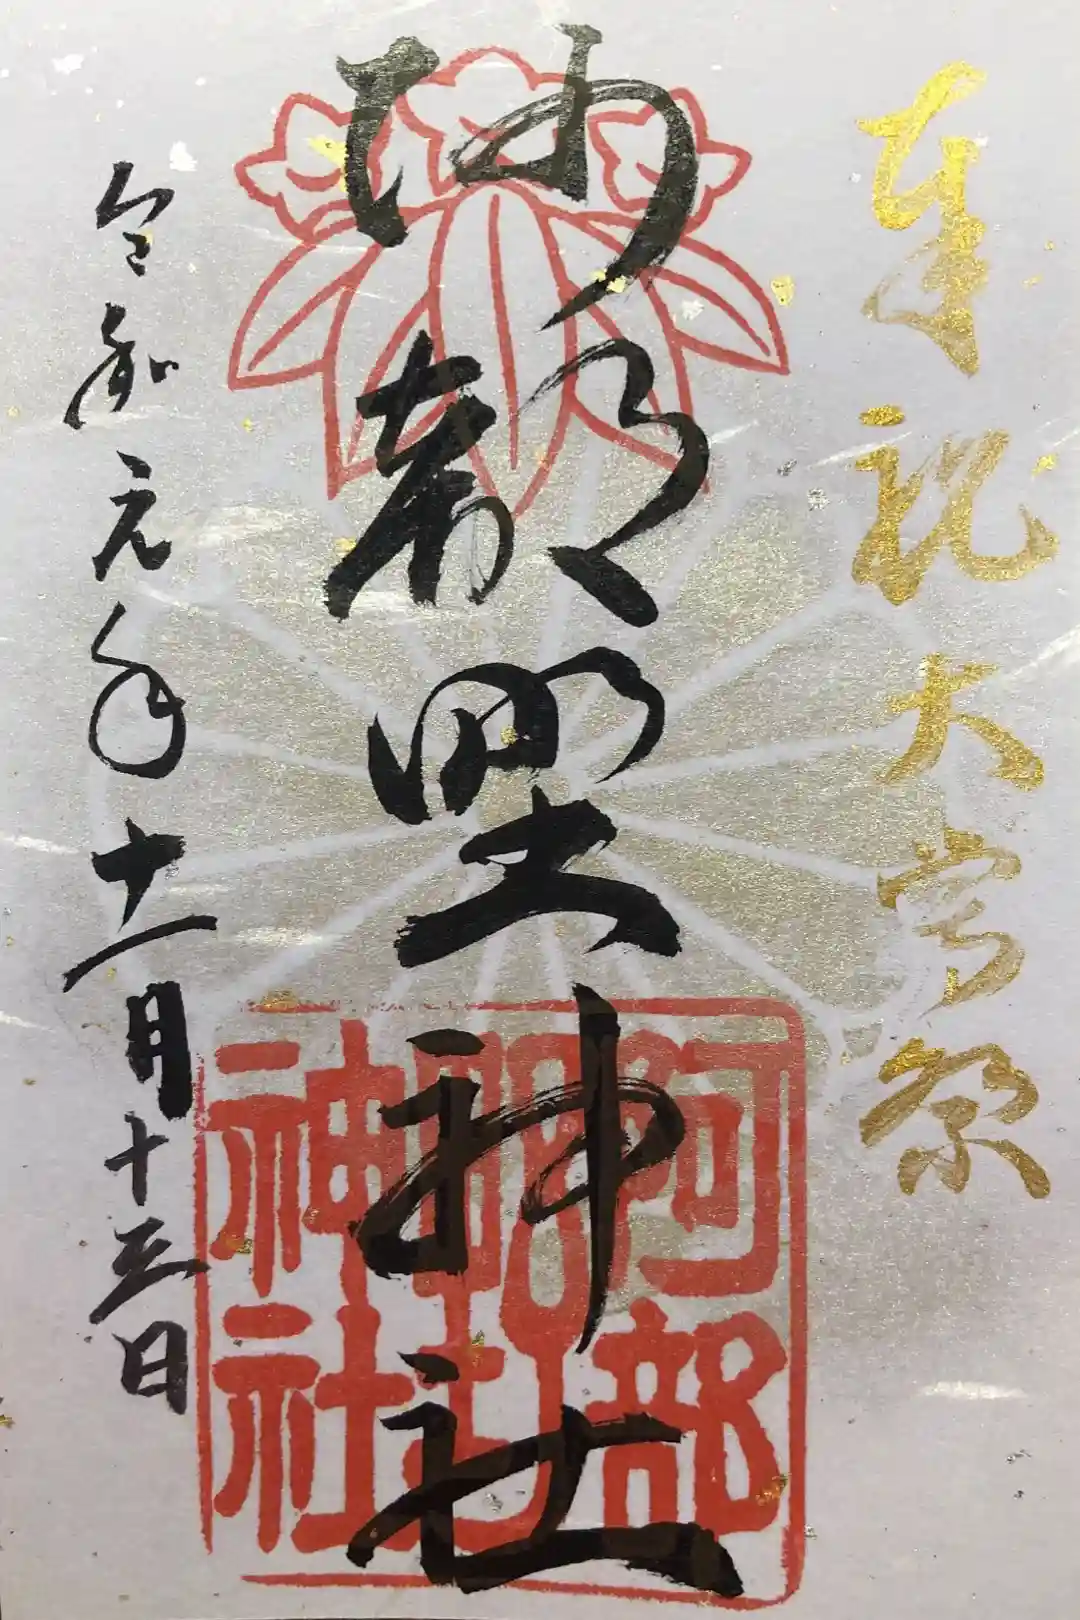 奉祝大嘗祭
阿部野神社
阿部野神社
令和元年十一月十三日